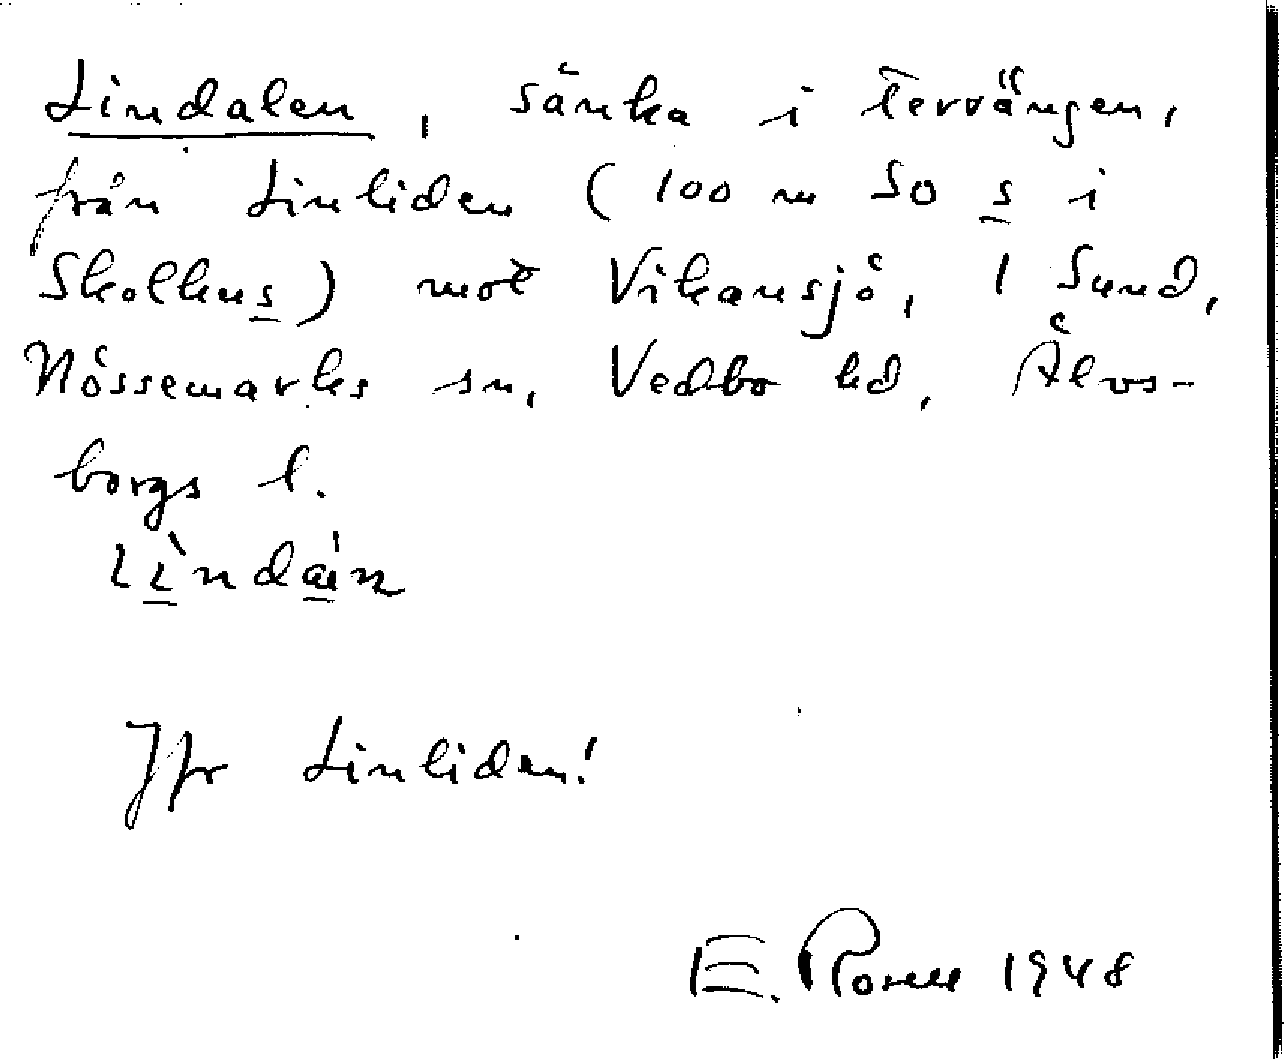 Lindalen, sänka i terrängen,
från Linliden (100 m SO s i
Skolhus) mot Vikansjö, 1 Sund,
Nössemarks sn, Vedbo hd, Älvs-
borgs l.
Lìndáın
Jfr Linliden!
E. 1948